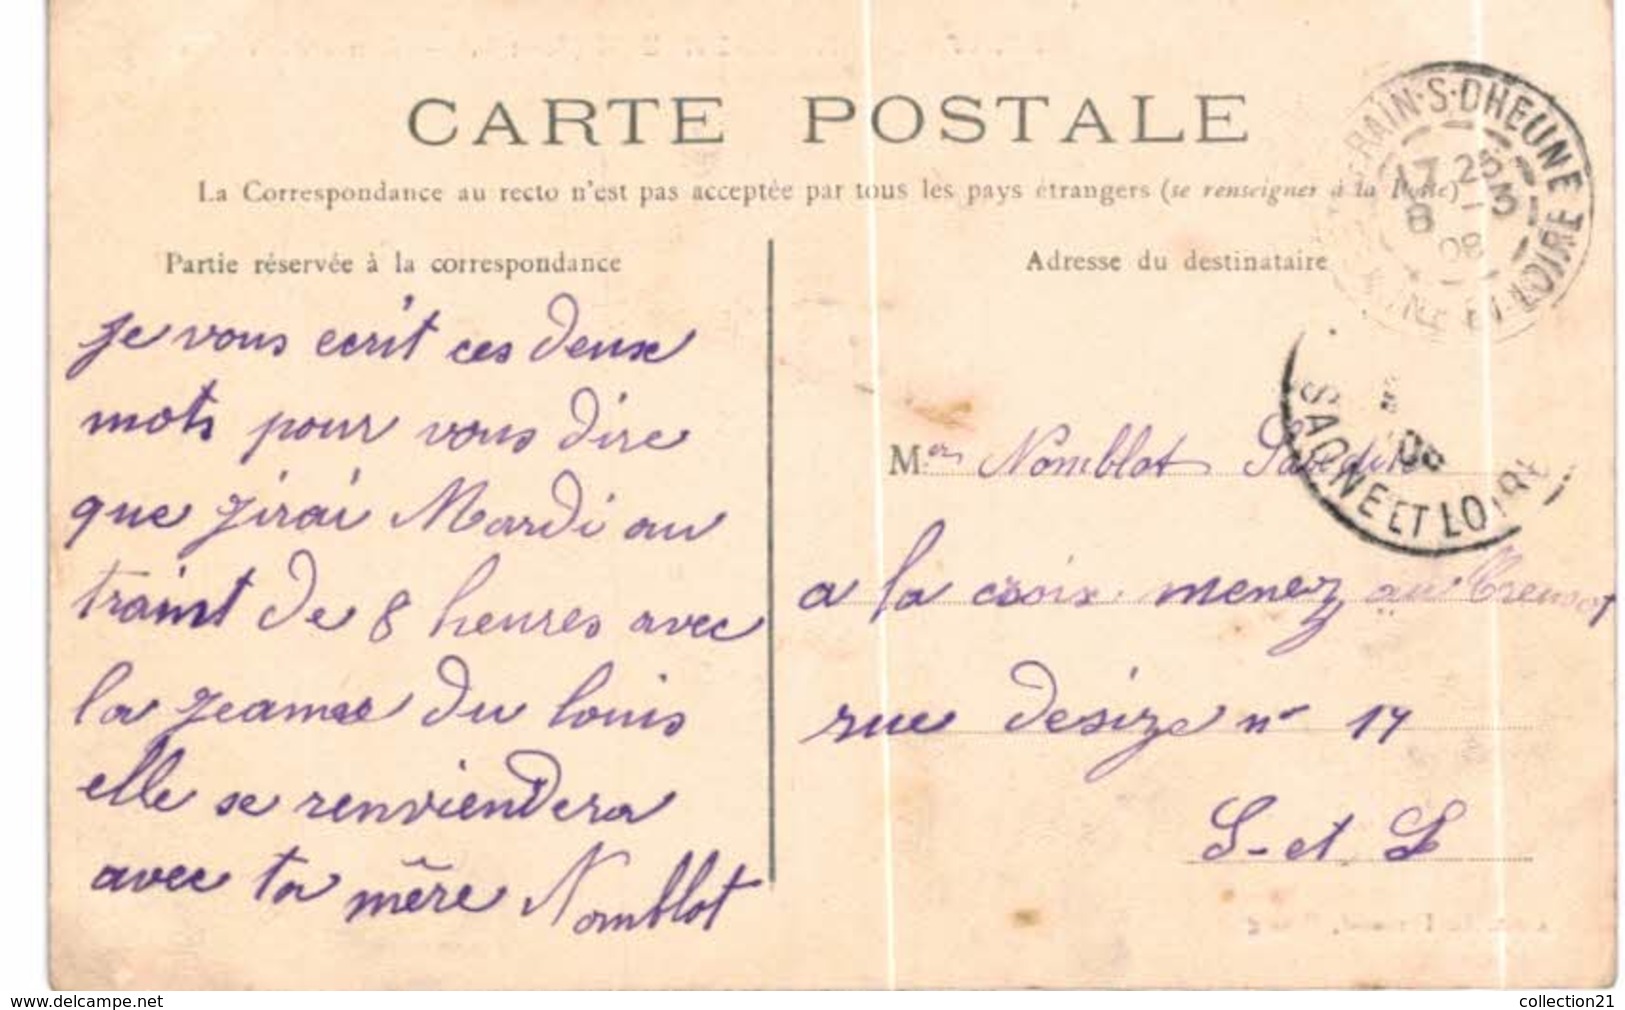 CARTE POSTALE
La Correspondance au recto n'est pas acceptée par tous les pays étrangers (se renseigner à la Poste)
Partie réservée à la correspondance
je vous ecrit ces deux
mots pour vous dire
que jirai Mardi au
traint de 8 heures avec
la jeanne du louis
elle se renviendera
avec ta mère Nomblot
Adresse du destinataire
M. Nomblot
a la croix menez au Creusot
rue desize no 17
S-et L
RAIN-S-DHEUNE
17 25
8 -3
08
ET-LOIRE
08
SAONE ET LOIRE
www.delcampe.net
collection21